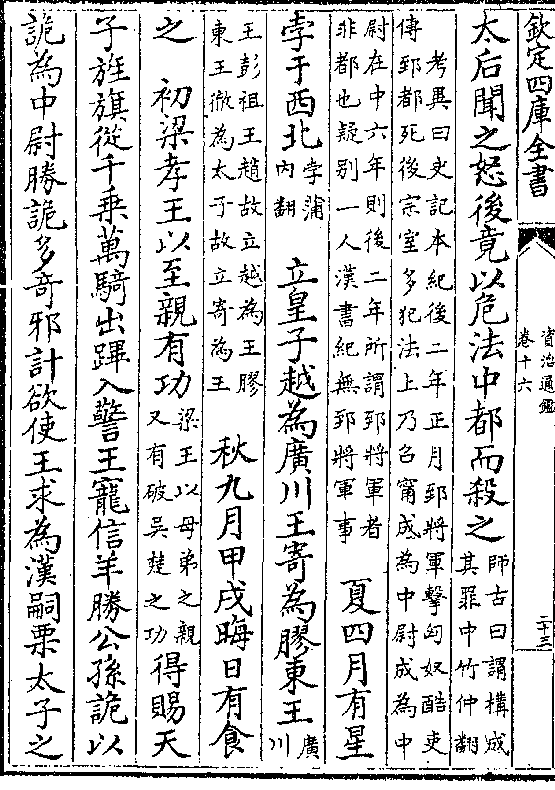 欽定四庫全書
資治通鑑
卷十六
二十三
太后聞之怒後竟以危法中都而殺之師古曰謂構成
其罪中竹仲翻
考異曰史記本紀後二年正月郅將軍擊匈奴酷吏
傳郅都死後宗室多犯法上乃召甯成為中尉成為中
尉在中六年則後二年所謂郅將軍者
非都也疑别一人漢書紀無郅將軍事
夏四月有星
孛于西北孛蒲
內翻
立皇子越為廣川王寄為膠東王廣
川
王彭祖王趙故立越為王膠
東王徹為太子故立寄為王
秋九月甲戌晦日有食
之 初梁孝王以至親有功梁王以母弟之親
又有破吳楚之功
得賜天
子旌旗從千乘萬騎出蹕入警王寵信羊勝公孫詭以
詭為中尉勝詭多奇邪計欲使王求為漢嗣栗太子之